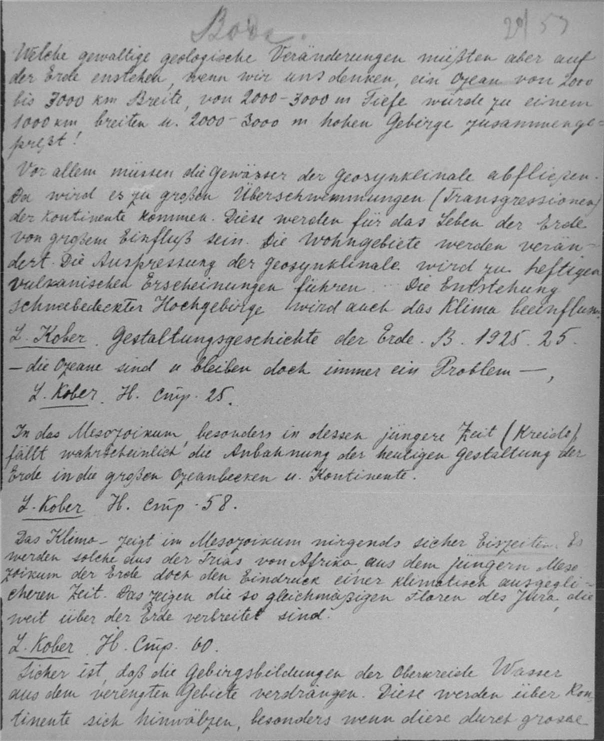 Вода.
29/57
Welche gewaltige geologische Veränderungen müßten aber auf
der Erde enstehen, wenn wir uns denken, ein Ozean von 2000
bis 3000 km Breite, von 2000-3000 m Tiefe würde zu einem
1000 km breiten u. 2000-3000 m hohen Gebirge zusammenge-
preßt!
Vor allem müssen die Gewässer der Geosynklinale abfließen.
Da wird es zu großen Überschwemmungen (Transgressionen)
der Kontinente kommen. Diese werden für das Leben der Erde
von großem Einfluß sein. Die Wohngebiete werden verän-
dert. Die Auspressung der Geosynklinale wird zu heftigen
vulkanischen Erscheinungen führen... Die Entstehung
schneebedeckter Hochgebirge wird auch das Klima beeinflun.
L. Kober. Gestaltungsgeschichte der Erde. B. 1925. 25.
— die Ozeane sind u bleiben doch immer ein Problem —,
L. Kober. H. Стр. 25.
In das Mesozoikum, besonders in dessen jüngere Zeit (Kreide)
fällt wahrscheinlich die Anbahnung der heutigen Gestaltung der
Erde in die großen Ozeanbecken u. Kontinente.
L. Kober H. Стр. 58.
Das Klima – zeigt im Mesozoikum nirgends sicher Eiszeiten. Es
werden solche aus der Trias von Afrika, aus dem jüngern Meso
zoikum der Erde doch den Eindruck einer klimatisch ausgegli-
cheren Zeit. Das zeigen die so gleichmäßigen Floren des Jura, die
weit über der Erde verbreitet sind.
L. Kober. H. Стр. 60.
Sicher ist, daß die Gebirgsbildungen der Oberkreide Wasser
aus dem verengten Gebiete verdrängen. Diese werden über Kon-
tinente sich hinwälzen, besonders wenn diese durch grosse